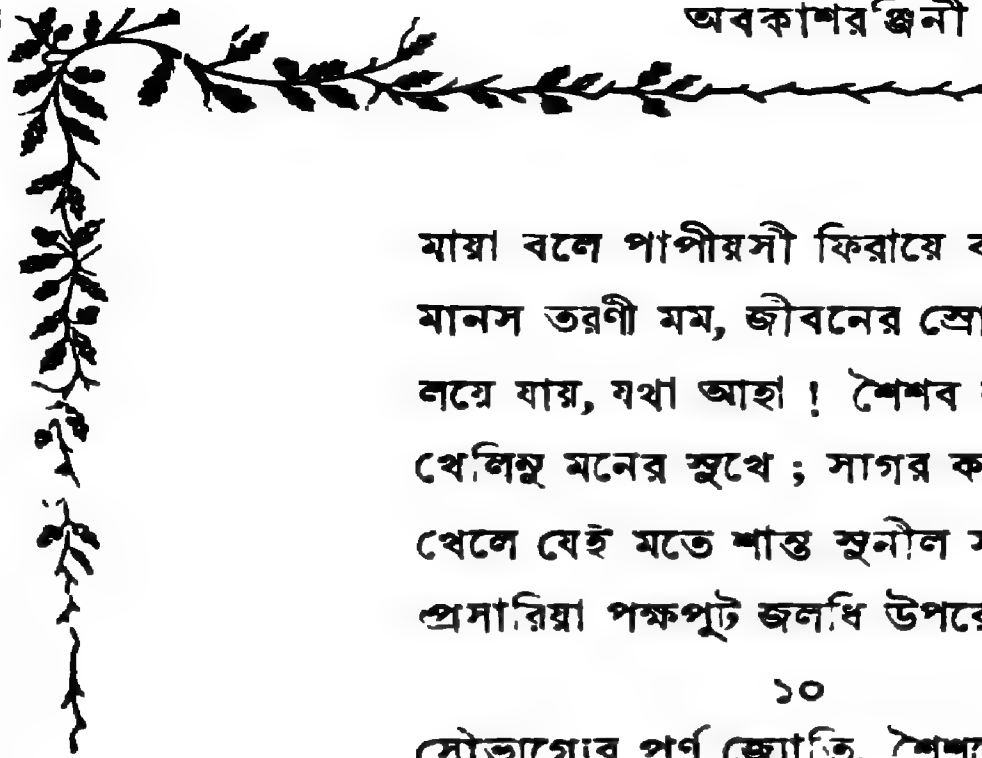 অবকাশরঞ্জিনী
মায়া বলে পাপীয়সী ফিরায়ে
মানস তরণী মম, জীবনের
লয়ে যায়, যথা আহা ! শৈশব
খেলিনু মনের সুখে ; সাগর
খেলে যেই মতে শান্ত সুনীল
প্রসারিয়া পক্ষপুট জলধি উপরে
১০
সৌভাগ্যের পূর্ণ জ্যোতি,